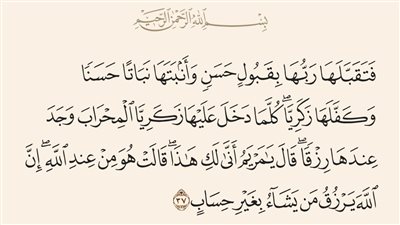 بِسْمِ ٱللَّهِ ٱلرَّحْمَٰنِ ٱلرَّحِيمِ
فَتَقَبَّلَهَا رَبُّهَا بِقَبُولٍ حَسَنٍ وَأَنۢبَتَهَا نَبَاتًا حَسَنًا
وَكَفَّلَهَا زَكَرِيَّا ۖ كُلَّمَا دَخَلَ عَلَيْهَا زَكَرِيَّا ٱلْمِحْرَابَ وَجَدَ
عِندَهَا رِزْقًا ۖ قَالَ يَٰمَرْيَمُ أَنَّىٰ لَكِ هَٰذَا ۖ قَالَتْ هُوَ مِنْ عِندِ ٱللَّهِ ۖ إِنَّ
ٱللَّهَ يَرْزُقُ مَن يَشَآءُ بِغَيْرِ حِسَابٍ ٣٧